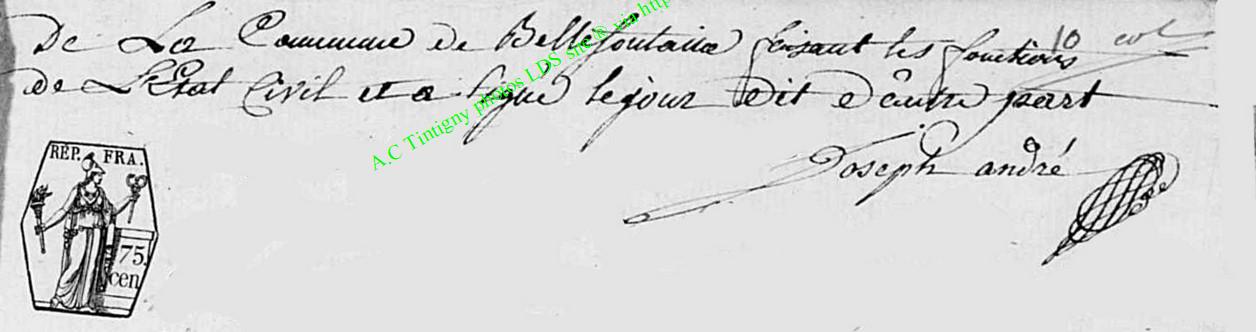 10 col
De La Commune de Bellefontaine faisant les fonctions
de L'Etat Civil et a signé le jour Dit D'autre part
Joseph andré
A.C Tintigny photos LDS site & via http
REP. FRA.
75.
cen